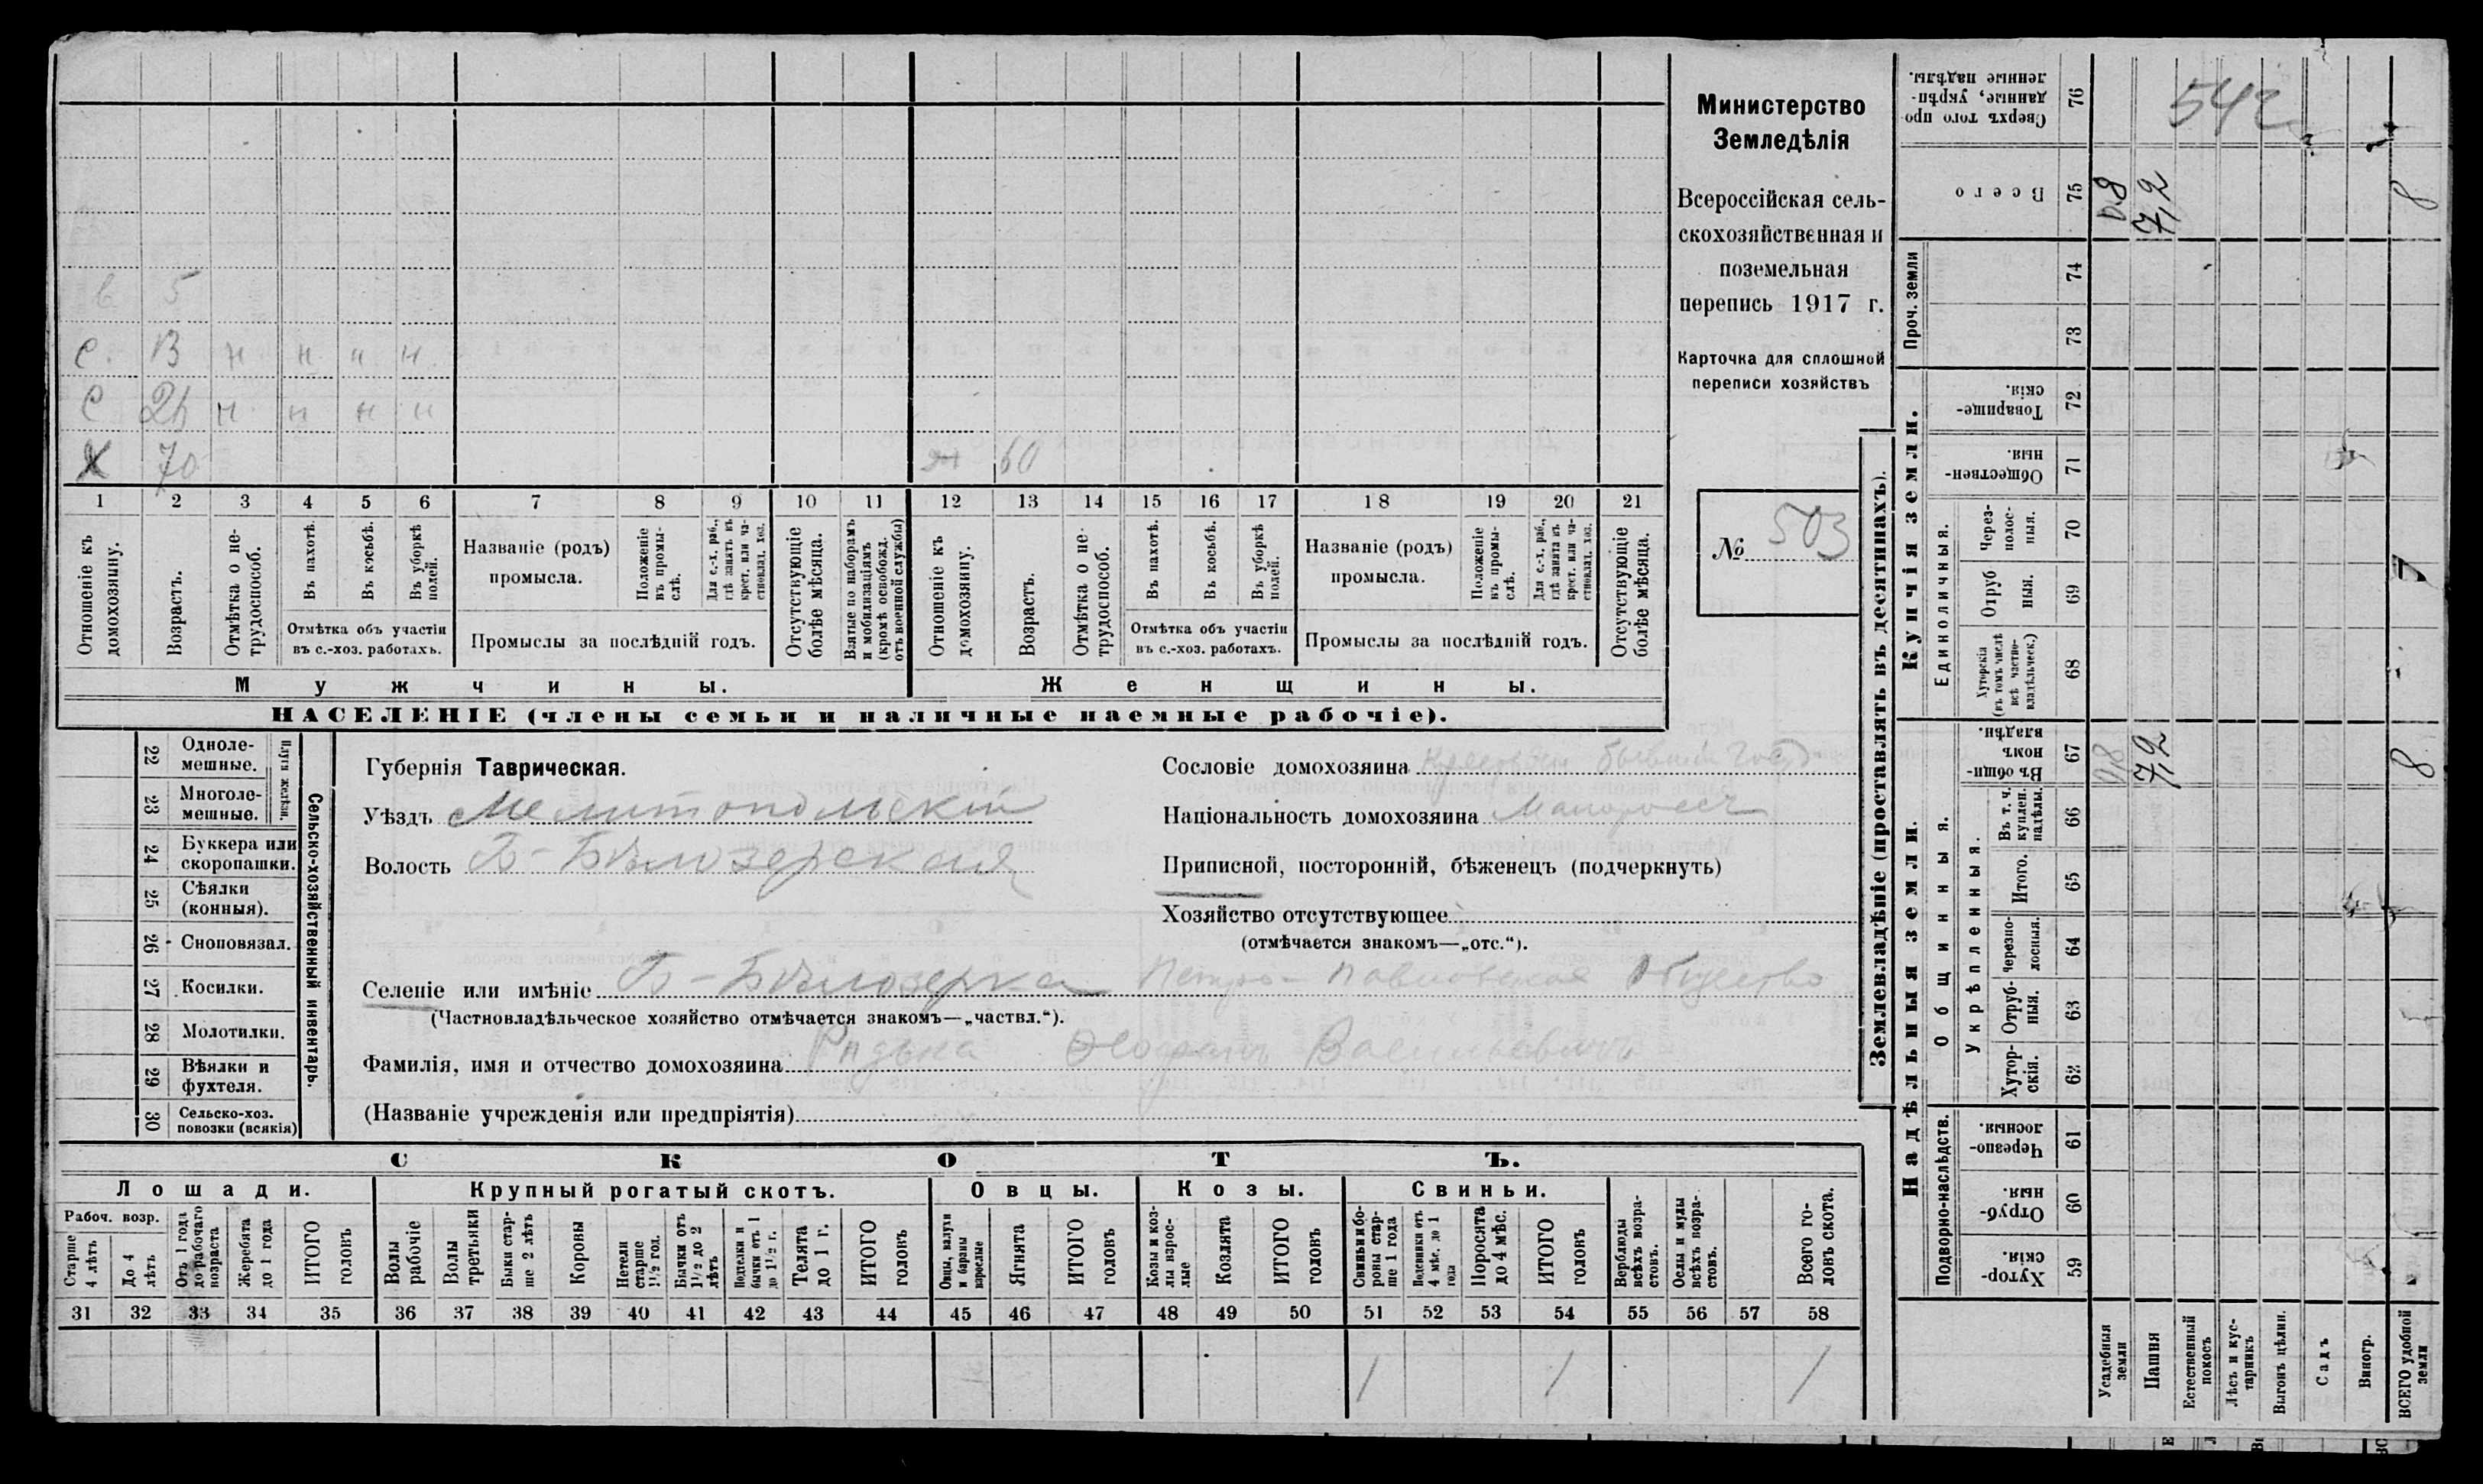 в 5
С. 13 н н н н
С 26 н н н н
Х 70 60
1 2 3 4 5 6 7 8 9 10 11 12 13 14 15 16 17 18 19 20 21
Отношеніе къ домохозяину.
Возрастъ.
Отмѣтка о не-трудоспособ.
Въ пахотѣ.
Въ косьбѣ.
Въ уборкѣ полей.
Отмѣтка объ участіи
въ с.-хоз. работахъ.
Названіе (родъ)
промысла.
Положеніе въ промы-слѣ.
Для с.-х. раб., гдѣ занятъ въ крест. или ча-стновлад. хоз.
Промыслы за послѣдній годъ.
Отсутствующіе болѣе мѣсяца.
Взятые по наборамъ и мобилизаціямъ (кромѣ освобожд. отъ военной службы)
Отношеніе къ домохозяину.
Возрастъ.
Отмѣтка о не-трудоспособ.
Въ пахотѣ.
Въ косьбѣ.
Въ уборкѣ полей.
Отмѣтка объ участіи
въ с.-хоз. работахъ.
Названіе (родъ)
промысла.
Положеніе въ промы-слѣ.
Для с.-х. раб., гдѣ занята въ крест. или ча-стновлад. хоз.
Промыслы за послѣдній годъ.
Отсутствующіе болѣе мѣсяца.
Мужчины.
Женщины.
НАСЕЛЕНІЕ (члены семьи и наличные наемные рабочіе).
Министерство
Земледѣлія
Всероссійская сель-
скохозяйственная и
поземельная
перепись 1917 г.
Карточка для сплошной
переписи хозяйствъ
№ 503
Сельско-хозяйственный инвентарь.
Плуги желѣзн.
22 Одноле-мешные.
23 Многоле-мешные.
24 Буккера или скоропашки.
25 Сѣялки (конныя).
26 Сноповязал.
27 Косилки.
28 Молотилки.
29 Вѣялки и фухтеля.
30 Сельско-хоз. повозки (всякія)
Губернія Таврическая.
Уѣздъ Мелитопольскій
Волость Б-Бѣлозерская
Сословіе домохозяина бывший Госуд
Національность домохозяина Малороссъ
Приписной, посторонній, бѣженецъ (подчеркнуть)
Хозяйство отсутствующее
(отмѣчается знакомъ—„отс.“).
Селеніе или имѣніе Б-Бѣлозерка Петро-Павловское Общество
(Частновладѣльческое хозяйство отмѣчается знакомъ—„частвл.“).
Фамилія, имя и отчество домохозяина Рядька Васильевичъ
(Названіе учрежденія или предпріятія)
СКОТЪ.
Лошади. Крупный рогатый скотъ. Овцы. Козы. Свиньи.
Рабоч. возр.
Старше 4 лѣтъ
До 4 лѣтъ
Отъ 1 года до рабочаго возраста
Жеребята до 1 года
ИТОГО головъ
Волы рабочіе
Волы третьяки
Быки стар-ше 2 лѣтъ
Коровы
Нетели старше 1½ год.
Бычки отъ 1½ до 2 лѣтъ
Подтелки и бычки отъ 1 до 1½ г.
Телята до 1 г.
ИТОГО головъ
Овцы, валухи и бараны взрослые
Ягнята
ИТОГО головъ
Козы и коз-лы взрос-лые
Козлята
ИТОГО головъ
Свиньи и бо-ровы стар-ше 1 года
Подсвинки отъ 4 мѣс. до 1 года
Поросята до 4 мѣс.
ИТОГО головъ
Верблюды всѣхъ возра-стовъ.
Ослы и мулы всѣхъ возра-стовъ.
Всего го-ловъ скота.
31 32 33 34 35 36 37 38 39 40 41 42 43 44 45 46 47 48 49 50 51 52 53 54 55 56 57 58
1 1 1
Землевладѣніе (проставлять въ десятинахъ).
Купчія земли.
Надѣльныя земли.
76 Сверхъ того про-данные, укрѣп-ленные надѣлы.
75 Всего 0,8 7,2 8
Проч. земли
74
73
72 Товарище-скія.
71 Обществен-ныя.
Единоличныя.
70 Через-полос-ныя.
69 Отруб ныя.
68 Хуторскія (въ томъ числѣ всѣ частно-владѣльческ.)
Общинныя.
67 Въ общи-номъ владѣн. 0,8 7,2 8
Укрѣпленныя.
66 Въ т. ч. куплен. надѣлы.
65 Итого.
64 Черезпо-лосныя.
63 Отруб-ныя.
62 Хутор-скія.
Подворно-наслѣдств.
61 Черезпо-лосныя.
60 Отруб-ныя.
59 Хутор-скія.
Усадебныя земли
Пашня
Естественный покосъ
Лѣсъ и кус-тарникъ
Выгонъ цѣлин.
Садъ
Виногр.
ВСЕГО удобной земли